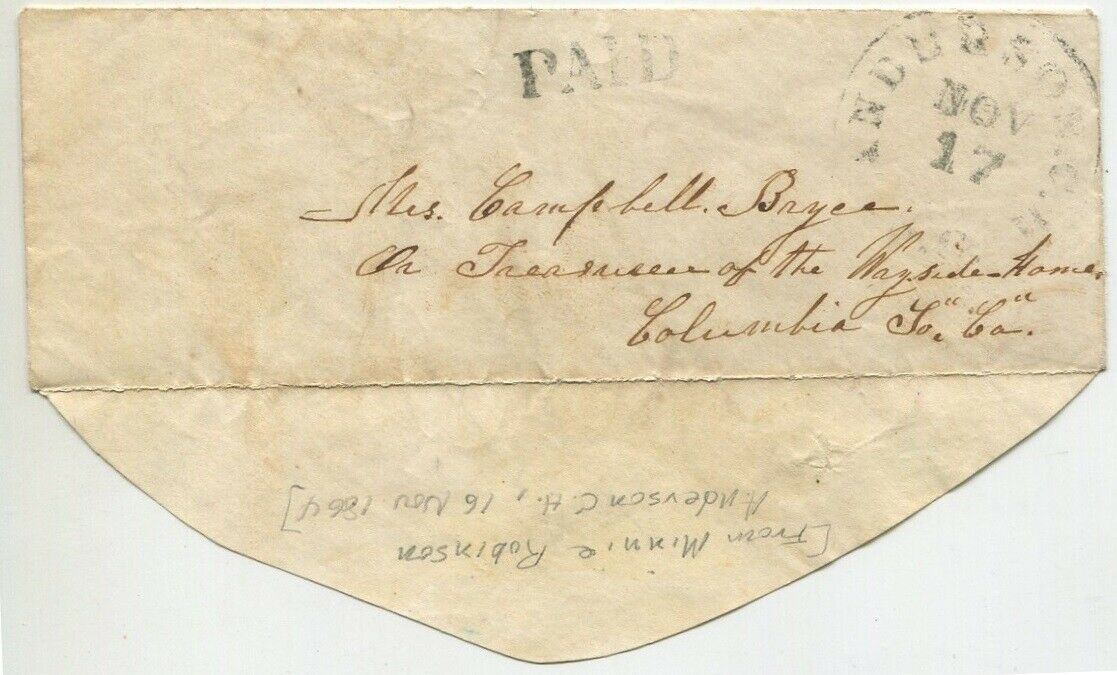 PAID
ANDERSON C.H. S.C.
NOV
17
Mrs. Campbell. Bryce.
Or Treasurer of the Wayside-Home.
Columbia So. "Ca".
[From Minnie Robinson
Anderson C.H., 16 Nov 1864]